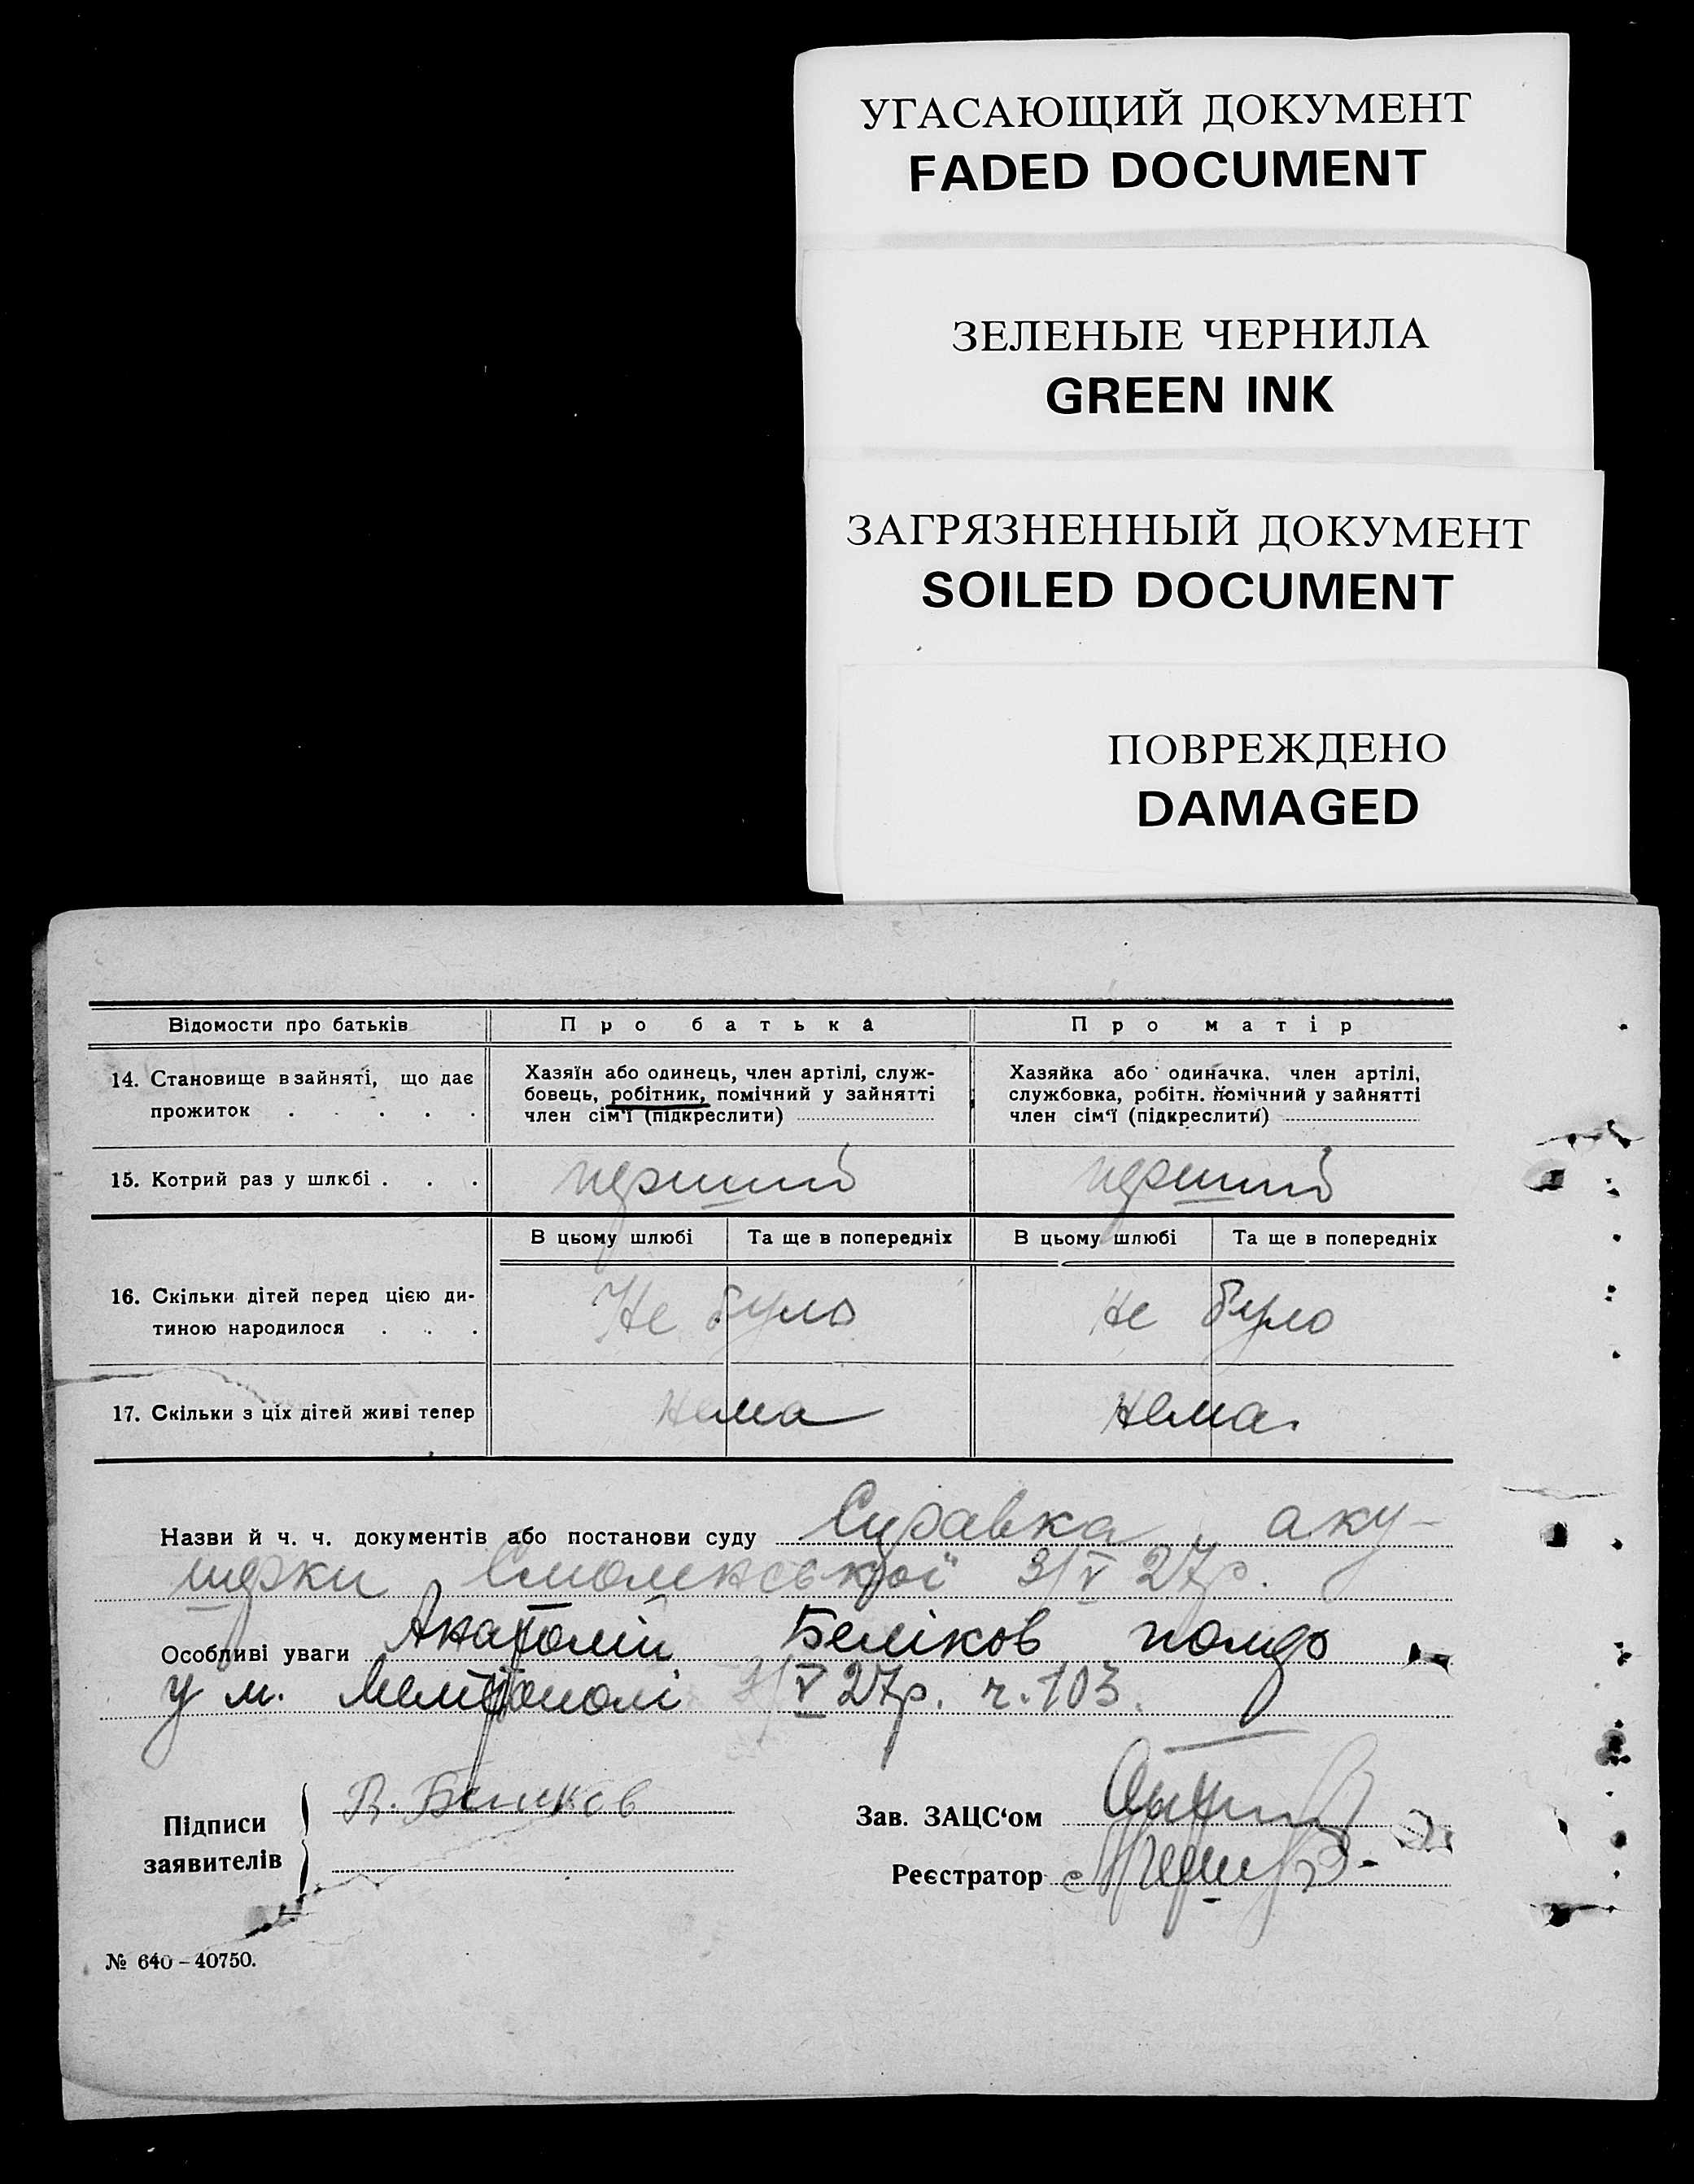 УГАСАЮЩИЙ ДОКУМЕНТ
FADED DOCUMENT
ЗЕЛЕНЫЕ ЧЕРНИЛА
GREEN INK
ЗАГРЯЗНЕННЫЙ ДОКУМЕНТ
SOILED DOCUMENT
ПОВРЕЖДЕНО
DAMAGED
Відомости про батьків Про батька Про матір
14. Становище в зайняті, що дає прожиток . . . . .
Хазяїн або одинець, член артілі, служ-
бовець, робітник, помічний у зайнятті
член сім'ї (підкреслити)
Хазяйка або одиначка, член артілі,
службовка, робітн. помічний у зайнятті
член сім'ї (підкреслити)
15. Котрий раз у шлюбі . . . перший перший
В цьому шлюбі Та ще в попередніх В цьому шлюбі Та ще в попередніх
16. Скільки дітей перед цією ди-
тиною народилося . . . Не було Не було
17. Скільки з ціх дітей живі тепер нема нема.
Назви й ч. ч. документів або постанови суду Справка аку-
шерки Смоленської 3/V 27р.
Особливі уваги Анатолій Беліков
у м. Мелітополі /V 27р. ч. 103.
Підписи
заявителів
В. Беликов
Зав. ЗАЦС'ом
Реєстратор
№ 640 – 40750.